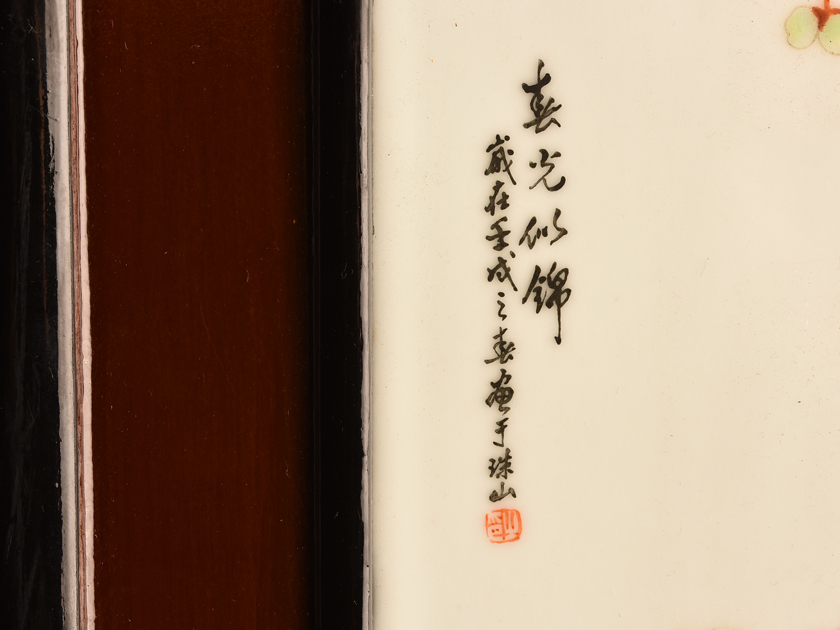 春光似錦
歲在壬戌之春畫于珠山